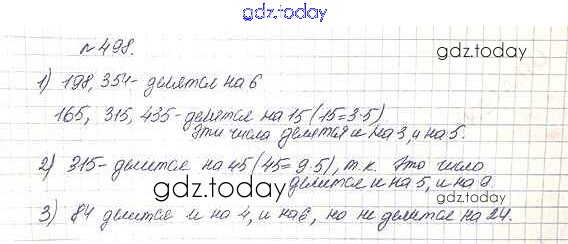 gdz.today
№498.
gdz.today
1) 198, 354 - делятся на 6
165, 315, 435 - делятся на 15 (15=3·5)
Эти числа делятся и на 3, и на 5.
2) 315 - делится на 45 (45=9·5), т.к. это число
делится и на 5, и на 9.
gdz.today
3) 84 делится и на 4, и на 6, но не делится на 24.
gdz.today